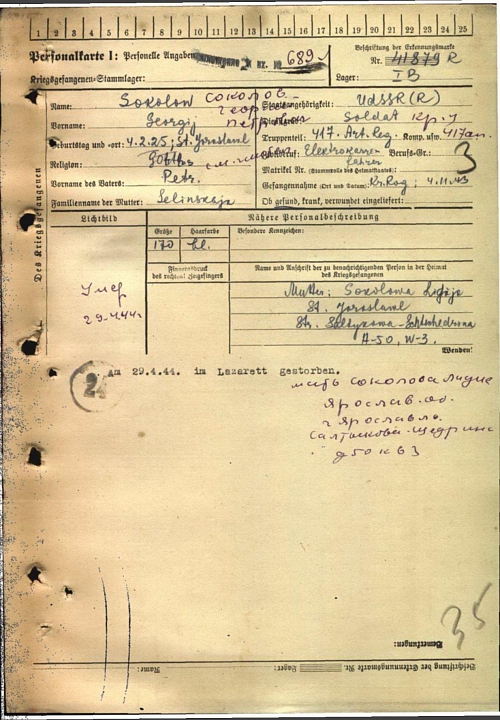 1 2 3 4 5 6 7 8 9 10 11 12 13 14 15 16 17 18 19 20 21 22 23 24 25
Personalkarte I: Personelle Angaben
689
Beschriftung der Erkennungsmarke
Nr. 41879 R
Kriegsgefangenen-Stammlager:
Lager: I B
Des Kriegsgefangenen
Name: Sokolow Соколов
Staatsangehörigkeit: UdSSR (R)
Георгий
Vorname: Georgij Петрович
Soldat Кр-ц
Geburtstag und -ort: 4.2.25; St. Jaroslawl
Truppenteil: 417. Art. Reg. Komp. usw. 417 ап.
Religion:
Elektrokarren Berufs-Gr.:
fahrer
3
Vorname des Vaters: Petr.
Matrikel Nr. (Stammrolle des Heimatstaates):
Gefangennahme (Ort und Datum): Kr. Rog; 4.11.43
Familienname der Mutter: Selinskaja
Ob gesund, krank, verwundet eingeliefert:
Lichtbild
Nähere Personalbeschreibung
Größe Haarfarbe Besondere Kennzeichen:
170 bl.
Fingerabdruck
des rechten Zeigefingers
Name und Anschrift der zu benachrichtigenden Person in der Heimat
des Kriegsgefangenen
Умер
29.4.44 г
Mutter: Sokolowa Lidija
St. Jaroslawl
Str. Saltykowa-Schtschedrina
A-50, W-3.
Wenden!
24
Am 29.4.44. im Lazarett gestorben.
мать Соколова Лидия
Ярослав. об.
г Ярославль
Салтыкова-Щедрина
д 50 к В 3
35
Bemerkungen:
Beschriftung der Erkennungsmarke Nr. Lager: Name: